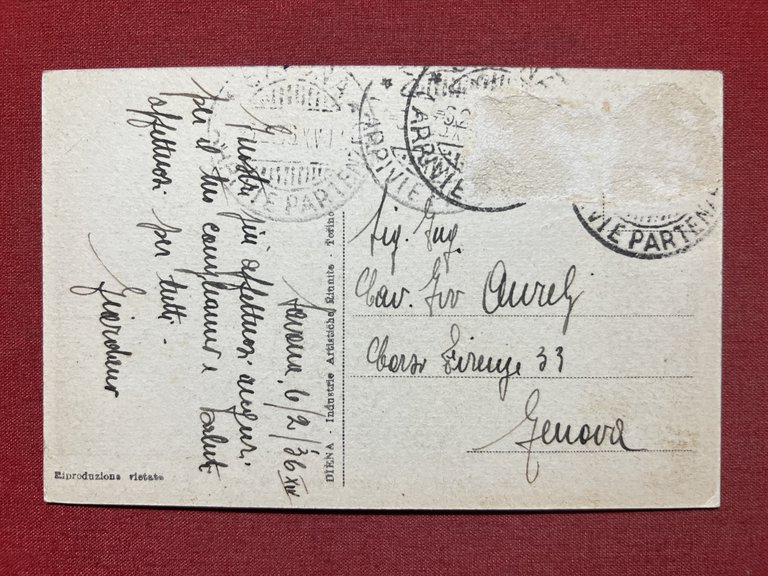 Savona, 6/2/36 XIV
I nostri più affettuosi auguri
per il tuo compleanno e saluti
affettuosi per tutti.
Riproduzione vietata
DIENA - Industrie Artistiche Riunite - Torino
ARRIVI E PARTENZE
ARRIVI E
ARRIVI E
VI E PARTENZE
Sig. Ing.
Cav. Avv Aurelj
Corso Firenze 33
Genova